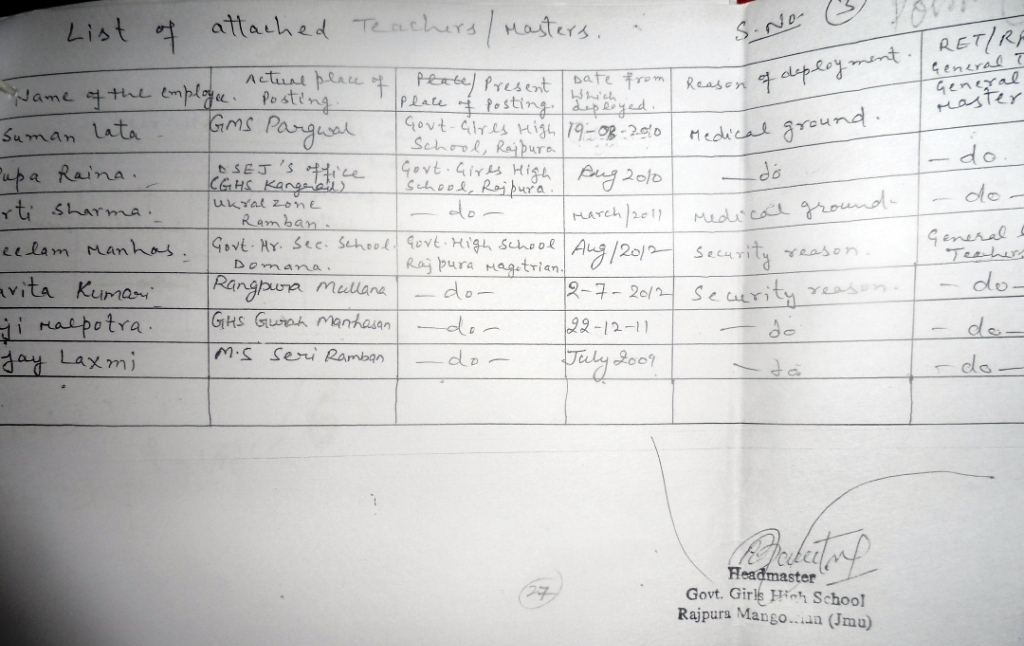 List of attached Teachers/Masters. S.No:
Name of the employee. Actual place of Posting. Present Place of Posting. Date from Which deployed. Reason of deployment. RET/RR General T General Master
Suman Lata GMS Pargwal Govt. Girls High School, Rajpura 19-08-2010 Medical ground.
upa Raina. DSEJ'S office (GHS Kangarail) Govt. Girls High School, Rajpura. Aug 2010 — do — do.
rti Sharma. Ukral zone Ramban. — do — March/2011 Medical ground. — do —
eelam Manhas. Govt. Hr. Sec. School. Domana. Govt. High School Rajpura Magotrian. Aug/2012 Security reason. General Teachers
avita Kumari Rangpura Mullana — do — 2-7-2012 Security reason. — do —
ji Malpotra. GHS Gurah Manhasan — do — 22-12-11 — do — do —
jay Laxmi M.S Seri Ramban — do — July 2009 — do — do —
27
Headmaster
Govt. Girls High School
Rajpura (Jmu)